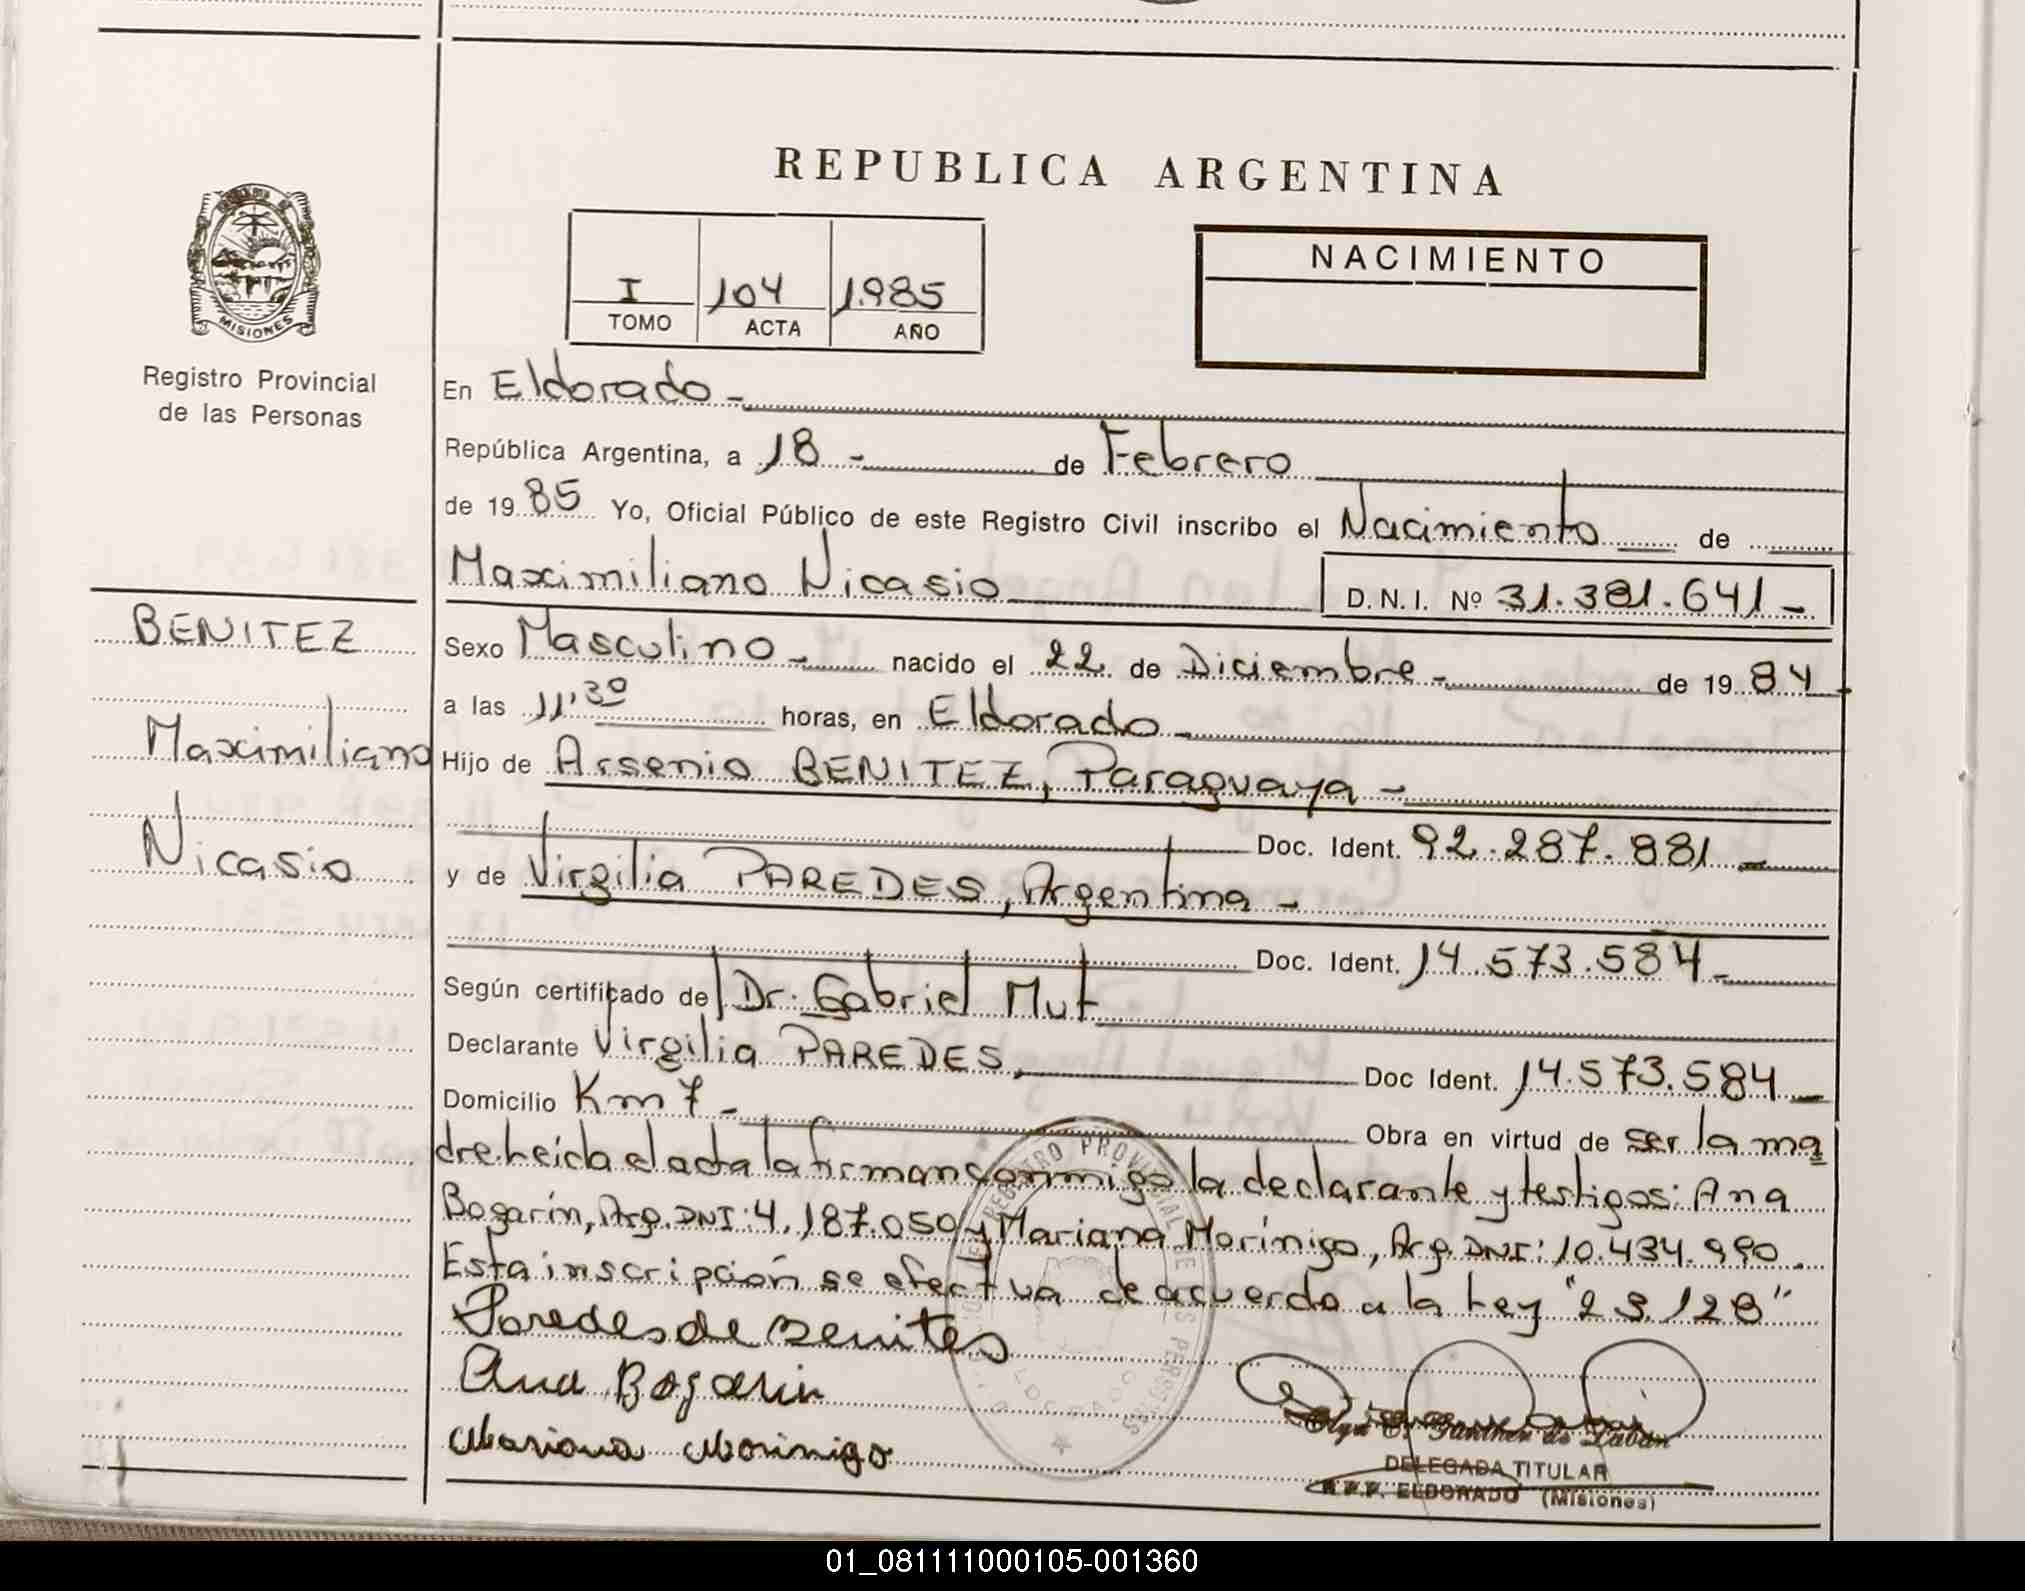 REPUBLICA ARGENTINA
I 104 1.985
TOMO ACTA AÑO
NACIMIENTO
MISIONES
Registro Provincial
de las Personas
BENITEZ
Maximiliano
Nicasio
En Eldorado -
República Argentina, a 18 - de Febrero
de 19 85 Yo, Oficial Público de este Registro Civil inscribo el Nacimiento de
Maximiliano Nicasio D.N.I. Nº 31.381.641 -
Sexo Masculino - nacido el 22 de Diciembre - de 19 84
a las 11'30 horas, en Eldorado -
Hijo de Arsenio BENITEZ, Paraguaya -
Doc. Ident. 92.287.881 -
y de Virgilia PAREDES, Argentina -
Doc. Ident. 14.573.584 -
Según certificado de Dr. Gabriel Mut
Declarante Virgilia PAREDES, Doc Ident. 14.573.584 -
Domicilio Km 7 - Obra en virtud de ser la ma
dre. Leída el acta la firman conmigo la declarante y testigos: Ana
Bogarín, Arg. DNI: 4.187.050 y Mariana Morínigo, Arg. DNI: 10.434.990.
Esta inscripción se efectua de acuerdo a la Ley "23.128"
Paredes de Benites
Ana Bogarin
Mariana Morinigo
REGISTRO PROVINCIAL DE LAS PERSONAS
ELDORADO
DELEGADA TITULAR
R.P.P. ELDORADO (Misiones)
01_081111000105-001360